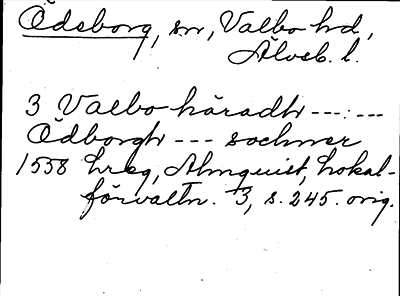 Ödsborg, sn, Valbo hd,
Älvsb. l.
3 Valbo häradh ---:---
Odborgh --- sochner
1558 hreg, Almquist, Lokal-
förvaltn. 3, s. 245. orig.